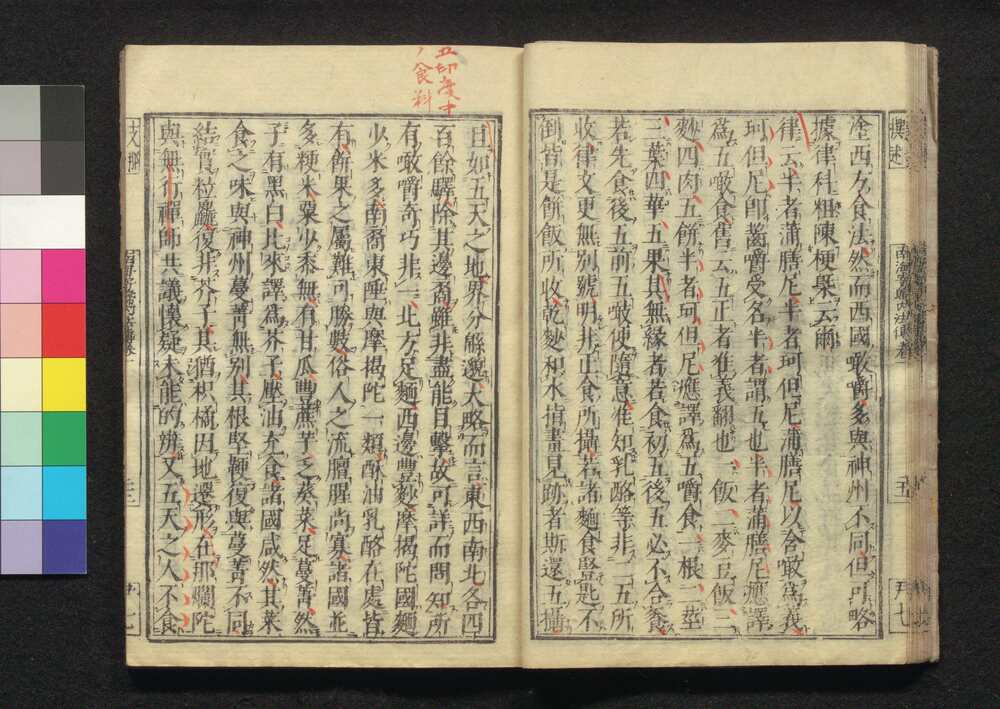 淦西方食法然而西國噉嚼多與神州不同但可略
據律科粗陳梗槩云爾
律云半者蒲膳尼半者珂但尼蒲膳尼以含噉爲義
珂但尼卽齧嚼受名半者謂五也半者蒲膳尼應譯
爲五噉食舊云五正者准義翻也一飯二麥豆飯三
麨四肉五餅半者珂但尼應譯爲五嚼食一根二莖
三葉四華五果其無緣者若食初五後五必不合飡
若先食後五前五噉便隨意准知乳酪等非二五所
收律文更無別號明非正食所攝若諸麵食豎匙不
倒皆是餅飯所收乾麨和水指畫見跡者斯還五攝
五印度中
ノ食料
且如五天之地界分緜邈大略而言東西南北各四
百餘驛除其邊裔雖非盡能目擊故可詳而問知所
有噉嚼奇巧非一北方足麵西邊豊麨摩揭陀國麵
少米多南裔東陲與摩揭陀一類酥油乳酪在處皆
有餅果之屬難可勝數俗人之流膻腥尚寡諸國並
多粳米粟少黍無有甘瓜豊蔗芋乏葵菜足蔓菁然
子有黑白比來譯爲芥子壓油充食諸國咸然其菜
食之味與神州蔓菁無別其根堅鞕復與蔓菁不同
結實粒麤復非芥子其猶枳橘因地遷形在那爛陀
與無行禪師共議懷疑未能的辨又五天之人不食